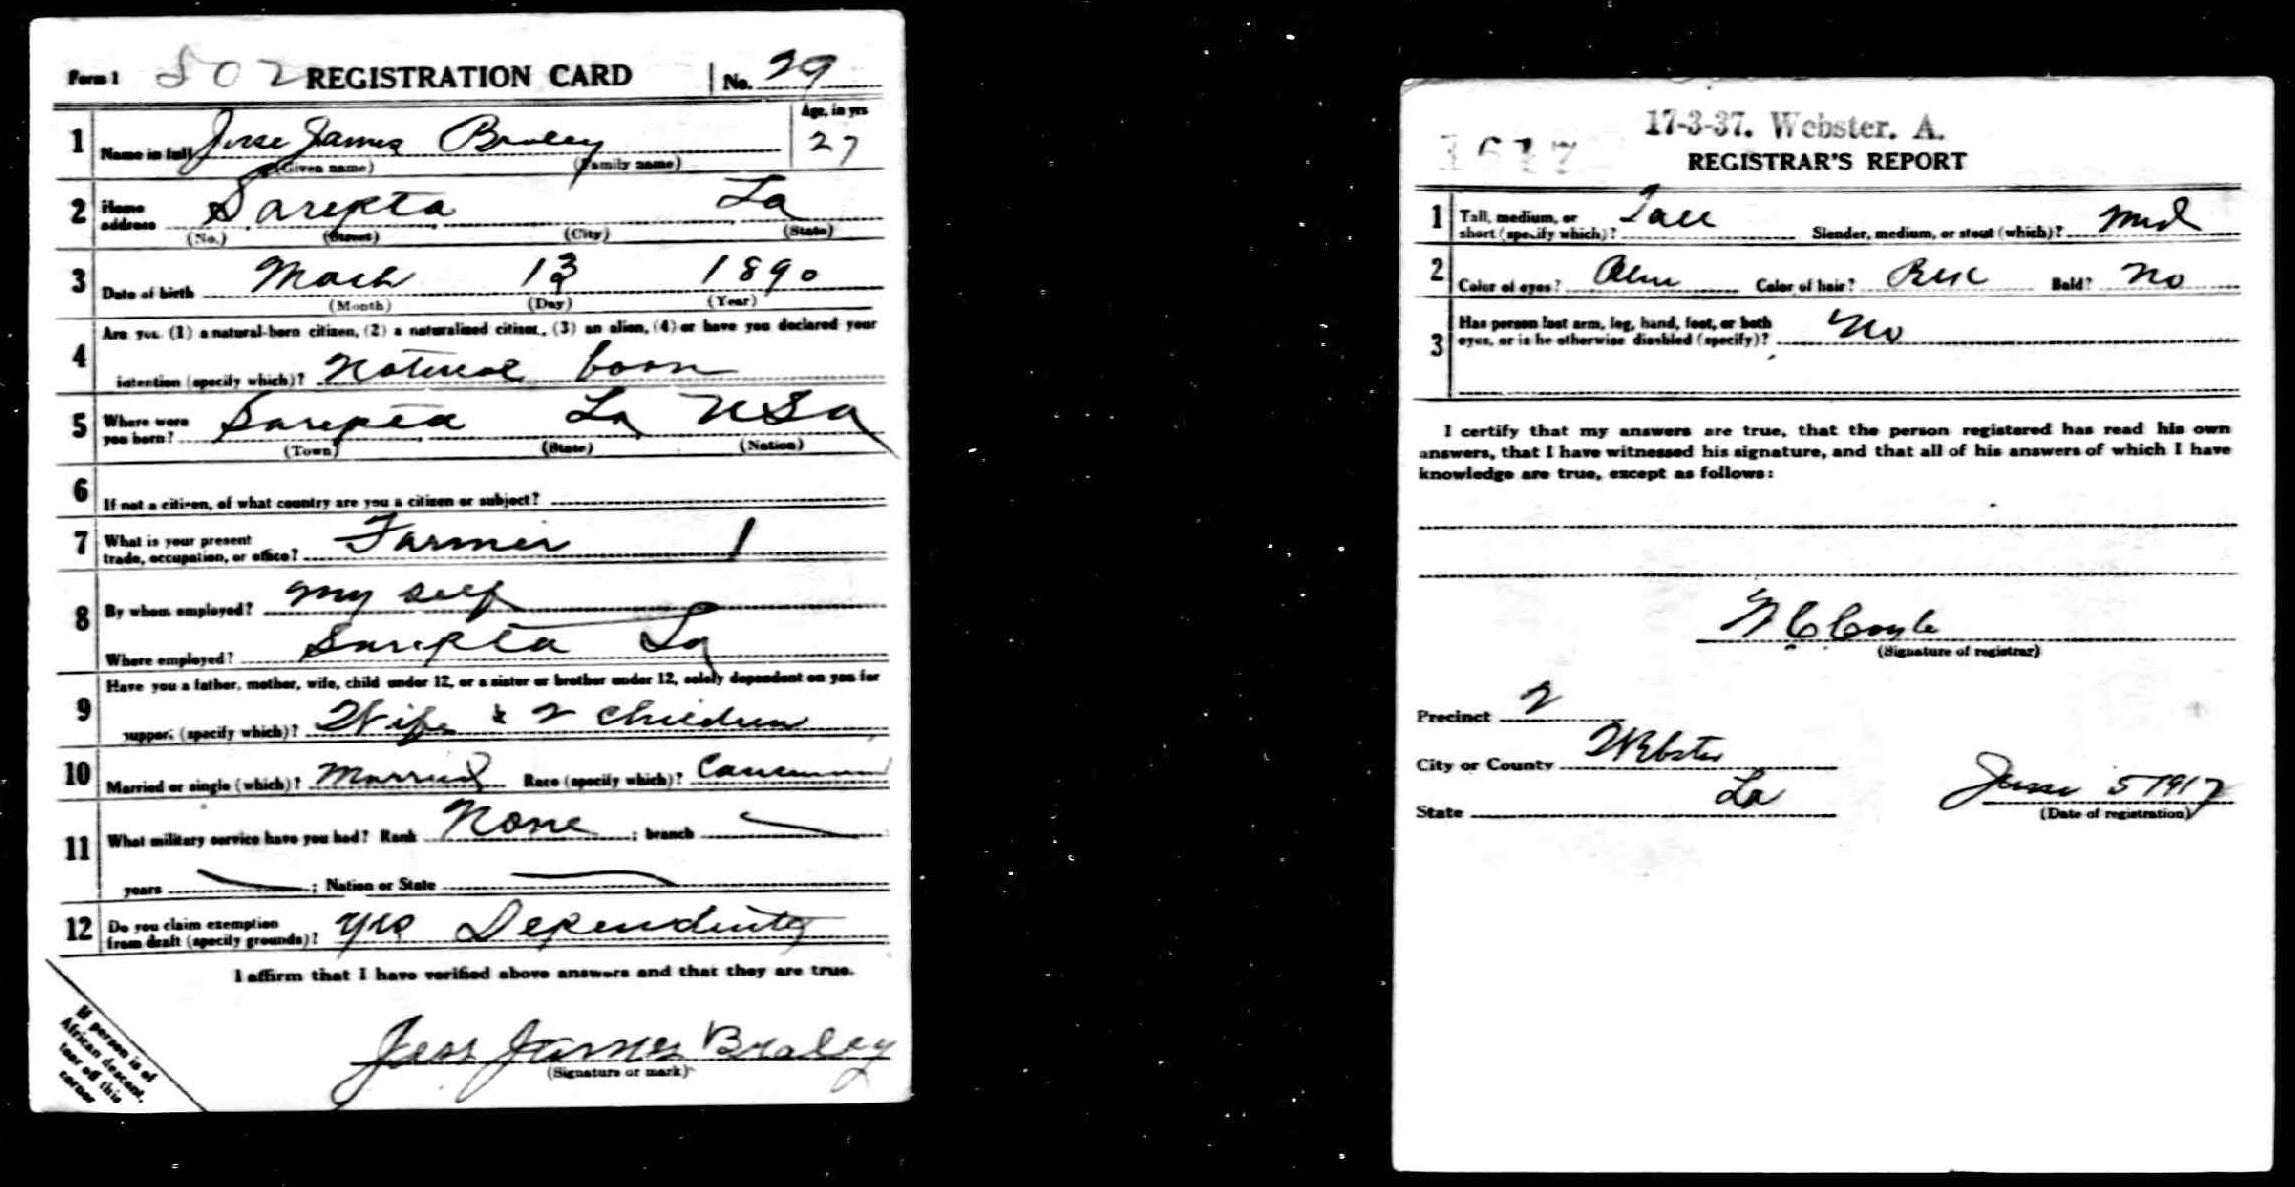 Form 1 502 REGISTRATION CARD No. 29
1 Name in full Jesse James Braley Age, in yrs 27
(Given name) (Family name)
2 Home address Sarepta La
(No.) (Street) (City) (State)
3 Date of birth Mach 13 1890
(Month) (Day) (Year)
Are you (1) a natural-born citizen, (2) a naturalized citizen, (3) an alien, (4) or have you declared your
4 intention (specify which)? Natural born
5 Where were you born? Sarepta La USA
(Town) (State) (Nation)
6 If not a citizen, of what country are you a citizen or subject?
7 What is your present
trade, occupation, or office? Farmer 1
8 By whom employed? My self
Where employed? Sarepta La
Have you a father, mother, wife, child under 12, or a sister or brother under 12, solely dependent on you for
9 support (specify which)? Wife & 2 children
10 Married or single (which)? Married Race (specify which)? Caucasian
11 What military service have you had? Rank None ; branch
years ; Nation or State
12 Do you claim exemption
from draft (specify grounds)? Yes Dependents
I affirm that I have verified above answers and that they are true.
Jess James Braley
(Signature or mark)
If person is of
African descent,
tear off this
corner
17-3-37. Webster. A.
1617
REGISTRAR'S REPORT
1 Tall, medium, or
short (specify which)? Tall Slender, medium, or stout (which)? Med
2 Color of eyes? Color of hair? Bald? No
3 Has person lost arm, leg, hand, foot, or both
eyes, or is he otherwise disabled (specify)? No
I certify that my answers are true, that the person registered has read his own
answers, that I have witnessed his signature, and that all of his answers of which I have
knowledge are true, except as follows:
(Signature of registrar)
Precinct 2
City or County Webster
State La June 5 1917
(Date of registration)